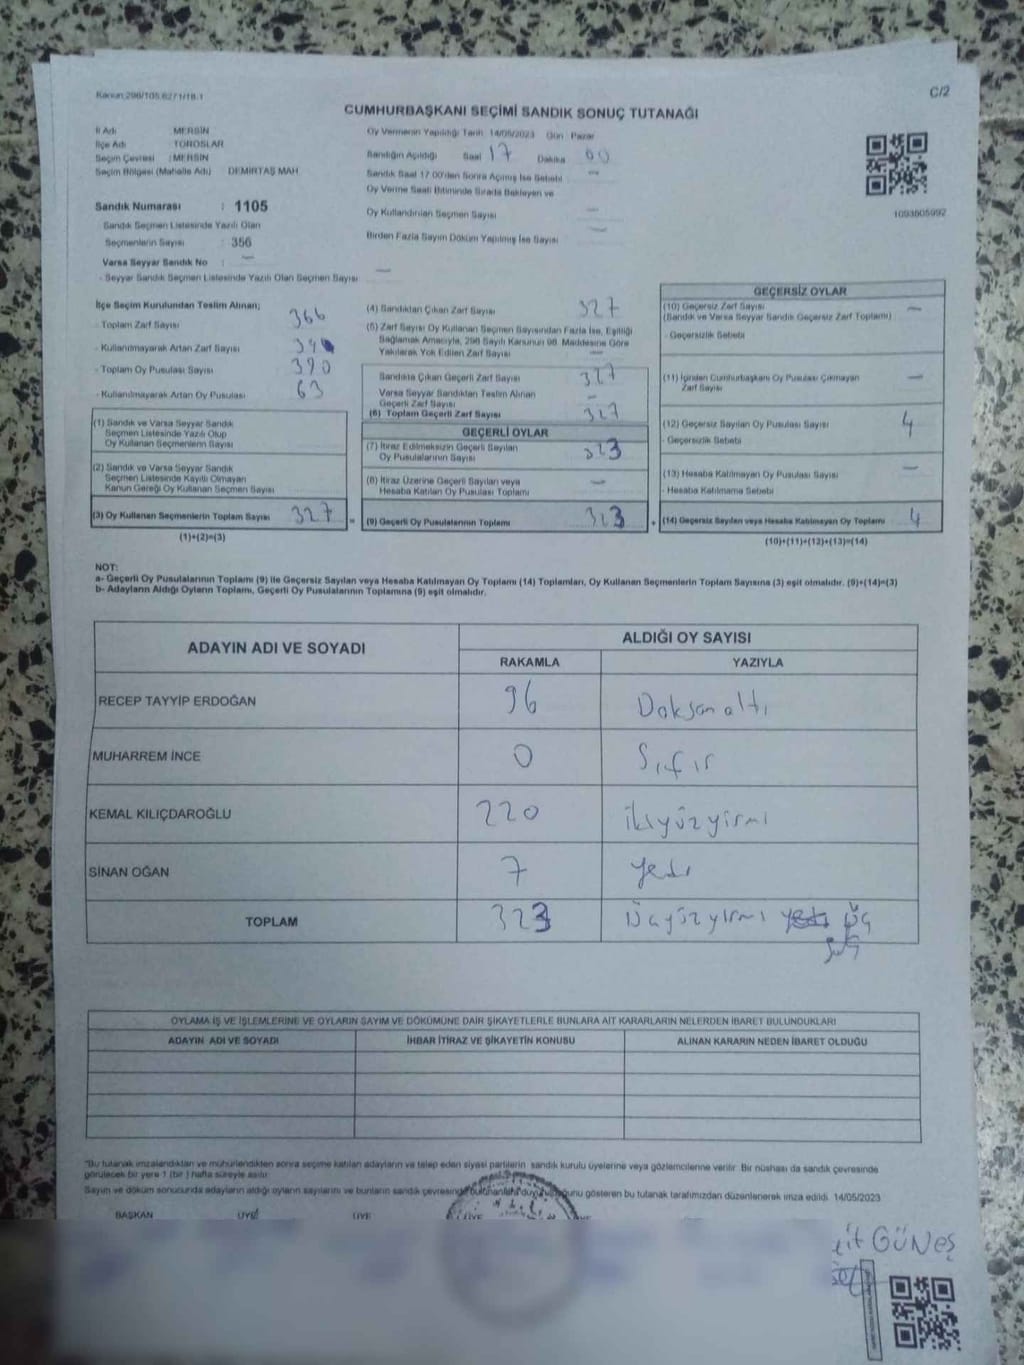 Kanun:298/105.6271/18.1
C/2
CUMHURBAŞKANI SEÇİMİ SANDIK SONUÇ TUTANAĞI
İl Adı MERSİN
İlçe Adı TOROSLAR
Seçim Çevresi : MERSİN
Seçim Bölgesi (Mahalle Adı) DEMİRTAŞ MAH
Sandık Numarası : 1105
Sandık Seçmen Listesinde Yazılı Olan
Seçmenlerin Sayısı : 356
Varsa Seyyar Sandık No : —
- Seyyar Sandık Seçmen Listesinde Yazılı Olan Seçmen Sayısı —
Oy Vermenin Yapıldığı Tarih 14/05/2023 Gün Pazar
Sandığın Açıldığı Saat 17 Dakika 00
Sandık Saat 17:00'den Sonra Açılmış İse Sebebi —
Oy Verme Saati Bitiminde Sırada Bekleyen ve
Oy Kullandırılan Seçmen Sayısı —
Birden Fazla Sayım Döküm Yapılmış İse Sayısı —
1093605992
İlçe Seçim Kurulundan Teslim Alınan;
- Toplam Zarf Sayısı 366
- Kullanılmayarak Artan Zarf Sayısı
- Toplam Oy Pusulası Sayısı 390
- Kullanılmayarak Artan Oy Pusulası 63
(1) Sandık ve Varsa Seyyar Sandık
Seçmen Listesinde Yazılı Olup
Oy Kullanan Seçmenlerin Sayısı
(2) Sandık ve Varsa Seyyar Sandık
Seçmen Listesinde Kayıtlı Olmayan
Kanun Gereği Oy Kullanan Seçmen Sayısı
(3) Oy Kullanan Seçmenlerin Toplam Sayısı 327 =
(1)+(2)=(3)
(4) Sandıktan Çıkan Zarf Sayısı 327
(5) Zarf Sayısı Oy Kullanan Seçmen Sayısından Fazla İse, Eşitliği
Sağlamak Amacıyla, 298 Sayılı Kanunun 98. Maddesine Göre
Yakılarak Yok Edilen Zarf Sayısı —
Sandıkta Çıkan Geçerli Zarf Sayısı 327
Varsa Seyyar Sandıktan Teslim Alınan
Geçerli Zarf Sayısı —
(6) Toplam Geçerli Zarf Sayısı 327
GEÇERLİ OYLAR
(7) İtiraz Edilmeksizin Geçerli Sayılan
Oy Pusulalarının Sayısı 323
(8) İtiraz Üzerine Geçerli Sayılan veya
Hesaba Katılan Oy Pusulası Toplamı —
(9) Geçerli Oy Pusulalarının Toplamı 323 +
GEÇERSİZ OYLAR
(10) Geçersiz Zarf Sayısı —
(Sandık ve Varsa Seyyar Sandık Geçersiz Zarf Toplamı)
- Geçersizlik Sebebi
(11) İçinden Cumhurbaşkanı Oy Pusulası Çıkmayan —
Zarf Sayısı
(12) Geçersiz Sayılan Oy Pusulası Sayısı 4
- Geçersizlik Sebebi
(13) Hesaba Katılmayan Oy Pusulası Sayısı —
- Hesaba Katılmama Sebebi
(14) Geçersiz Sayılan veya Hesaba Katılmayan Oy Toplamı 4
(10)+(11)+(12)+(13)=(14)
NOT:
a- Geçerli Oy Pusulalarının Toplamı (9) ile Geçersiz Sayılan veya Hesaba Katılmayan Oy Toplamı (14) Toplamları, Oy Kullanan Seçmenlerin Toplam Sayısına (3) eşit olmalıdır. (9)+(14)=(3)
b- Adayların Aldığı Oyların Toplamı, Geçerli Oy Pusulalarının Toplamına (9) eşit olmalıdır.
ADAYIN ADI VE SOYADI ALDIĞI OY SAYISI
RAKAMLA YAZIYLA
RECEP TAYYİP ERDOĞAN 96 Doksanaltı
MUHARREM İNCE 0 Sıfır
KEMAL KILIÇDAROĞLU 220 ikiyüzyirmi
SİNAN OĞAN 7 yedi
TOPLAM 323 Üçyüzyirmi yedi üç
OYLAMA İŞ VE İŞLEMLERİNE VE OYLARIN SAYIM VE DÖKÜMÜNE DAİR ŞİKAYETLERLE BUNLARA AİT KARARLARIN NELERDEN İBARET BULUNDUKLARI
ADAYIN ADI VE SOYADI İHBAR İTİRAZ VE ŞİKAYETİN KONUSU ALINAN KARARIN NEDEN İBARET OLDUĞU
"Bu tutanak imzalandıktan ve mühürlendikten sonra seçime katılan adayların ve talep eden siyasi partilerin sandık kurulu üyelerine veya gözlemcilerine verilir. Bir nüshası da sandık çevresinde
görülecek bir yere 1 (bir ) hafta süreyle asılır.
Sayım ve döküm sonucunda adayların aldığı oyların sayılarını ve bunların sandık çevresinde gösteren bu tutanak tarafımızdan düzenlenerek imza edildi. 14/05/2023
BAŞKAN ÜYE ÜYE ÜYE
GÜNEŞ